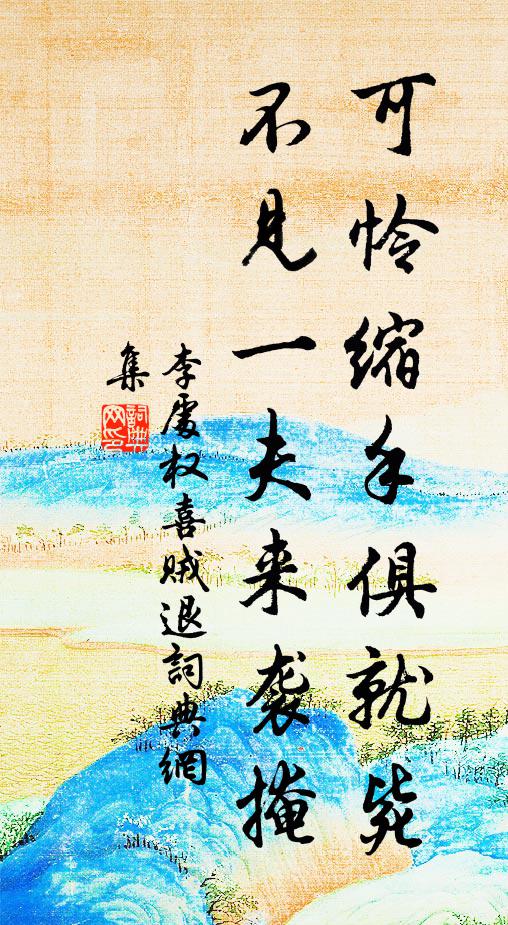 可怜缩手俱就毙
不见一夫来袭掩
李處权喜贼退詞典網
集
詞典网印